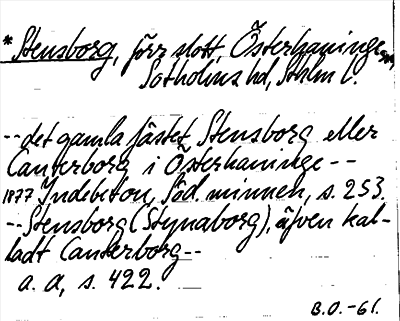 * Stensborg, förr slott, Österhaninge sn,
Sotholms hd, Sthlm l.
-- det gamla fästet Stensborg eller
Canterborg i Österhaninge --
1877 Indebetou, Söd. minnen, s. 253.
-- Stensborg (Stynaborg), äfven kal-
ladt Canterborg --
a. a, s. 422.
B.O.-61.